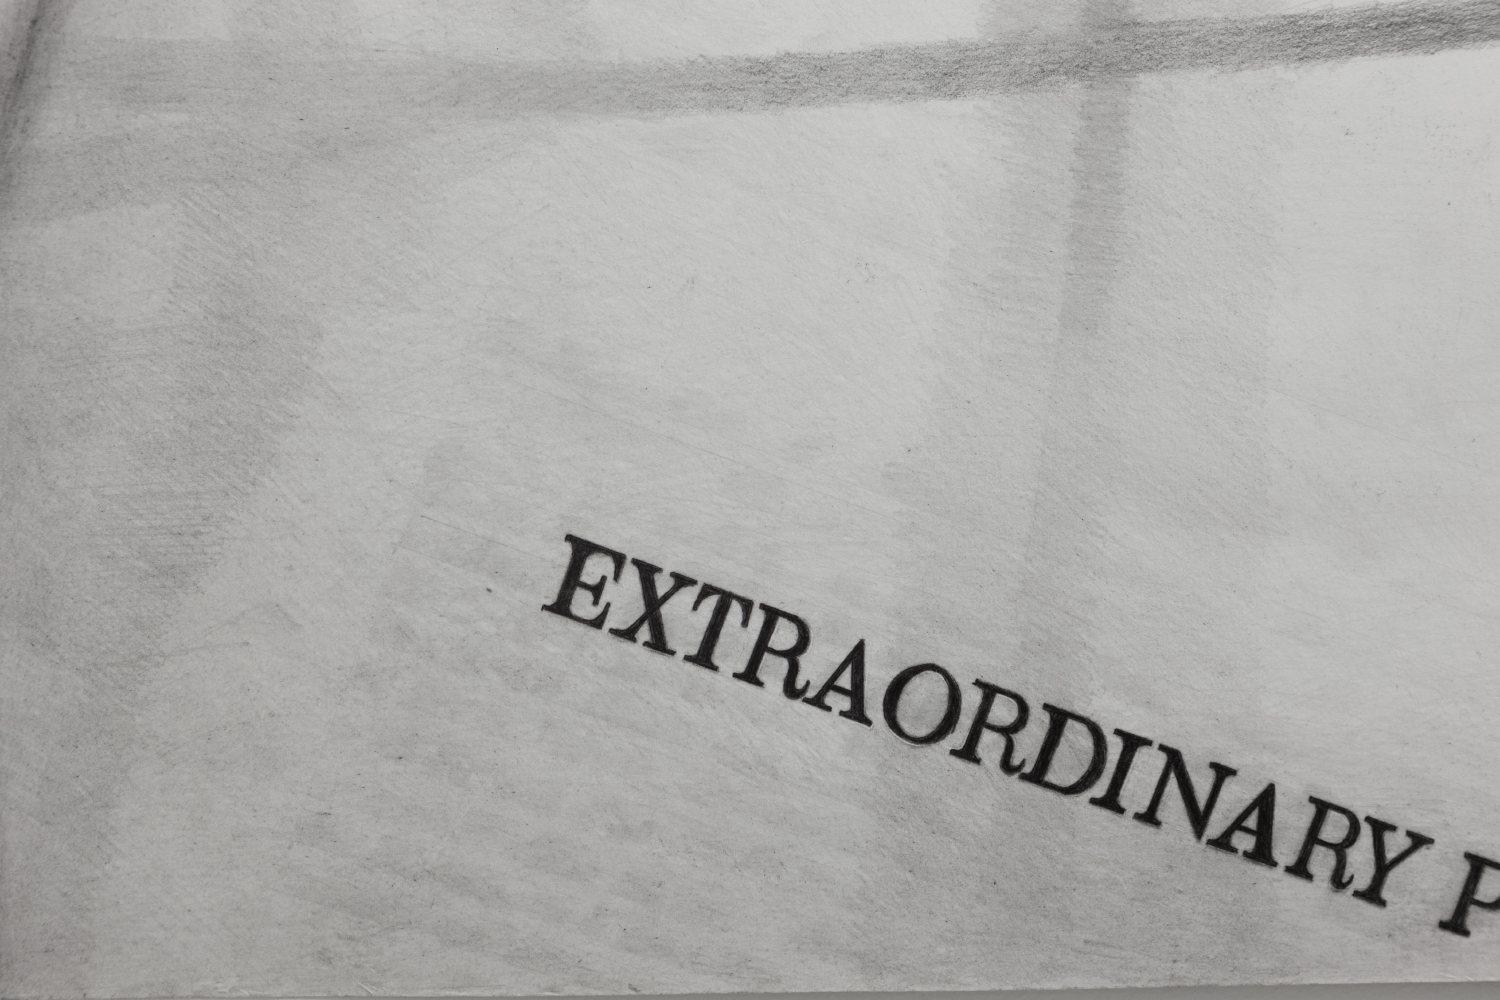 EXTRAORDINARY P